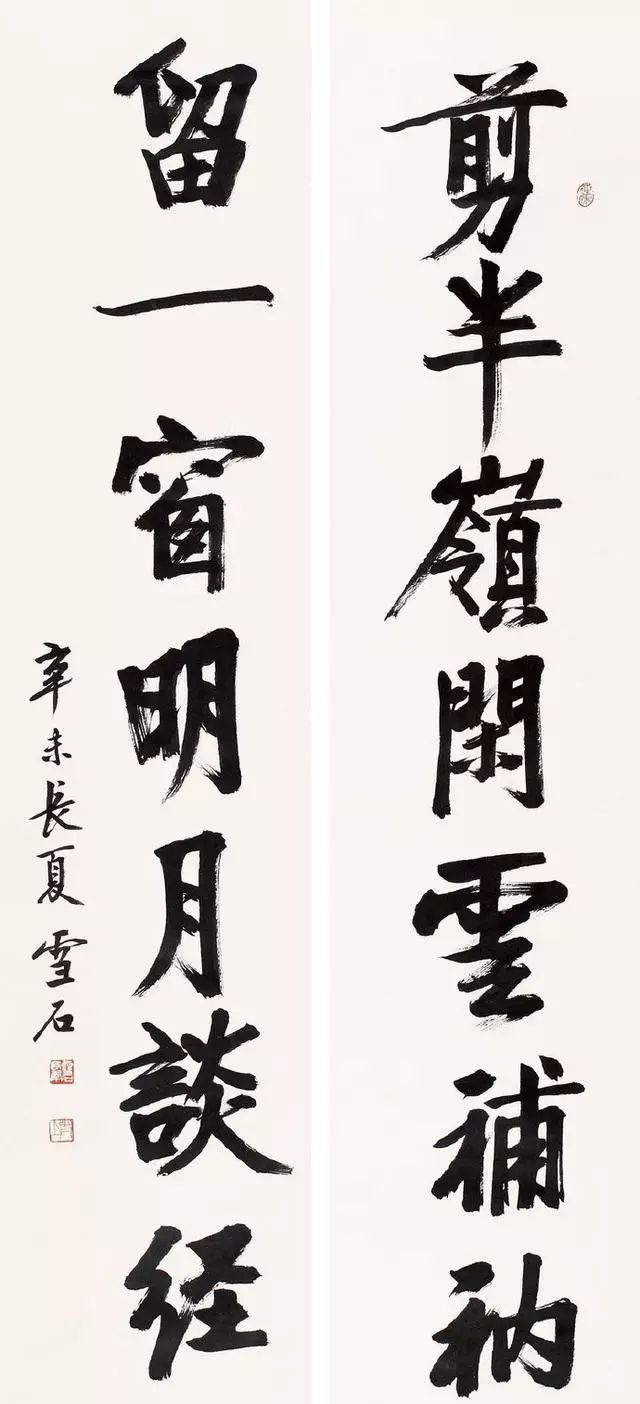 剪半嶺閑雲補衲
留一窗明月談经
辛未長夏雪石